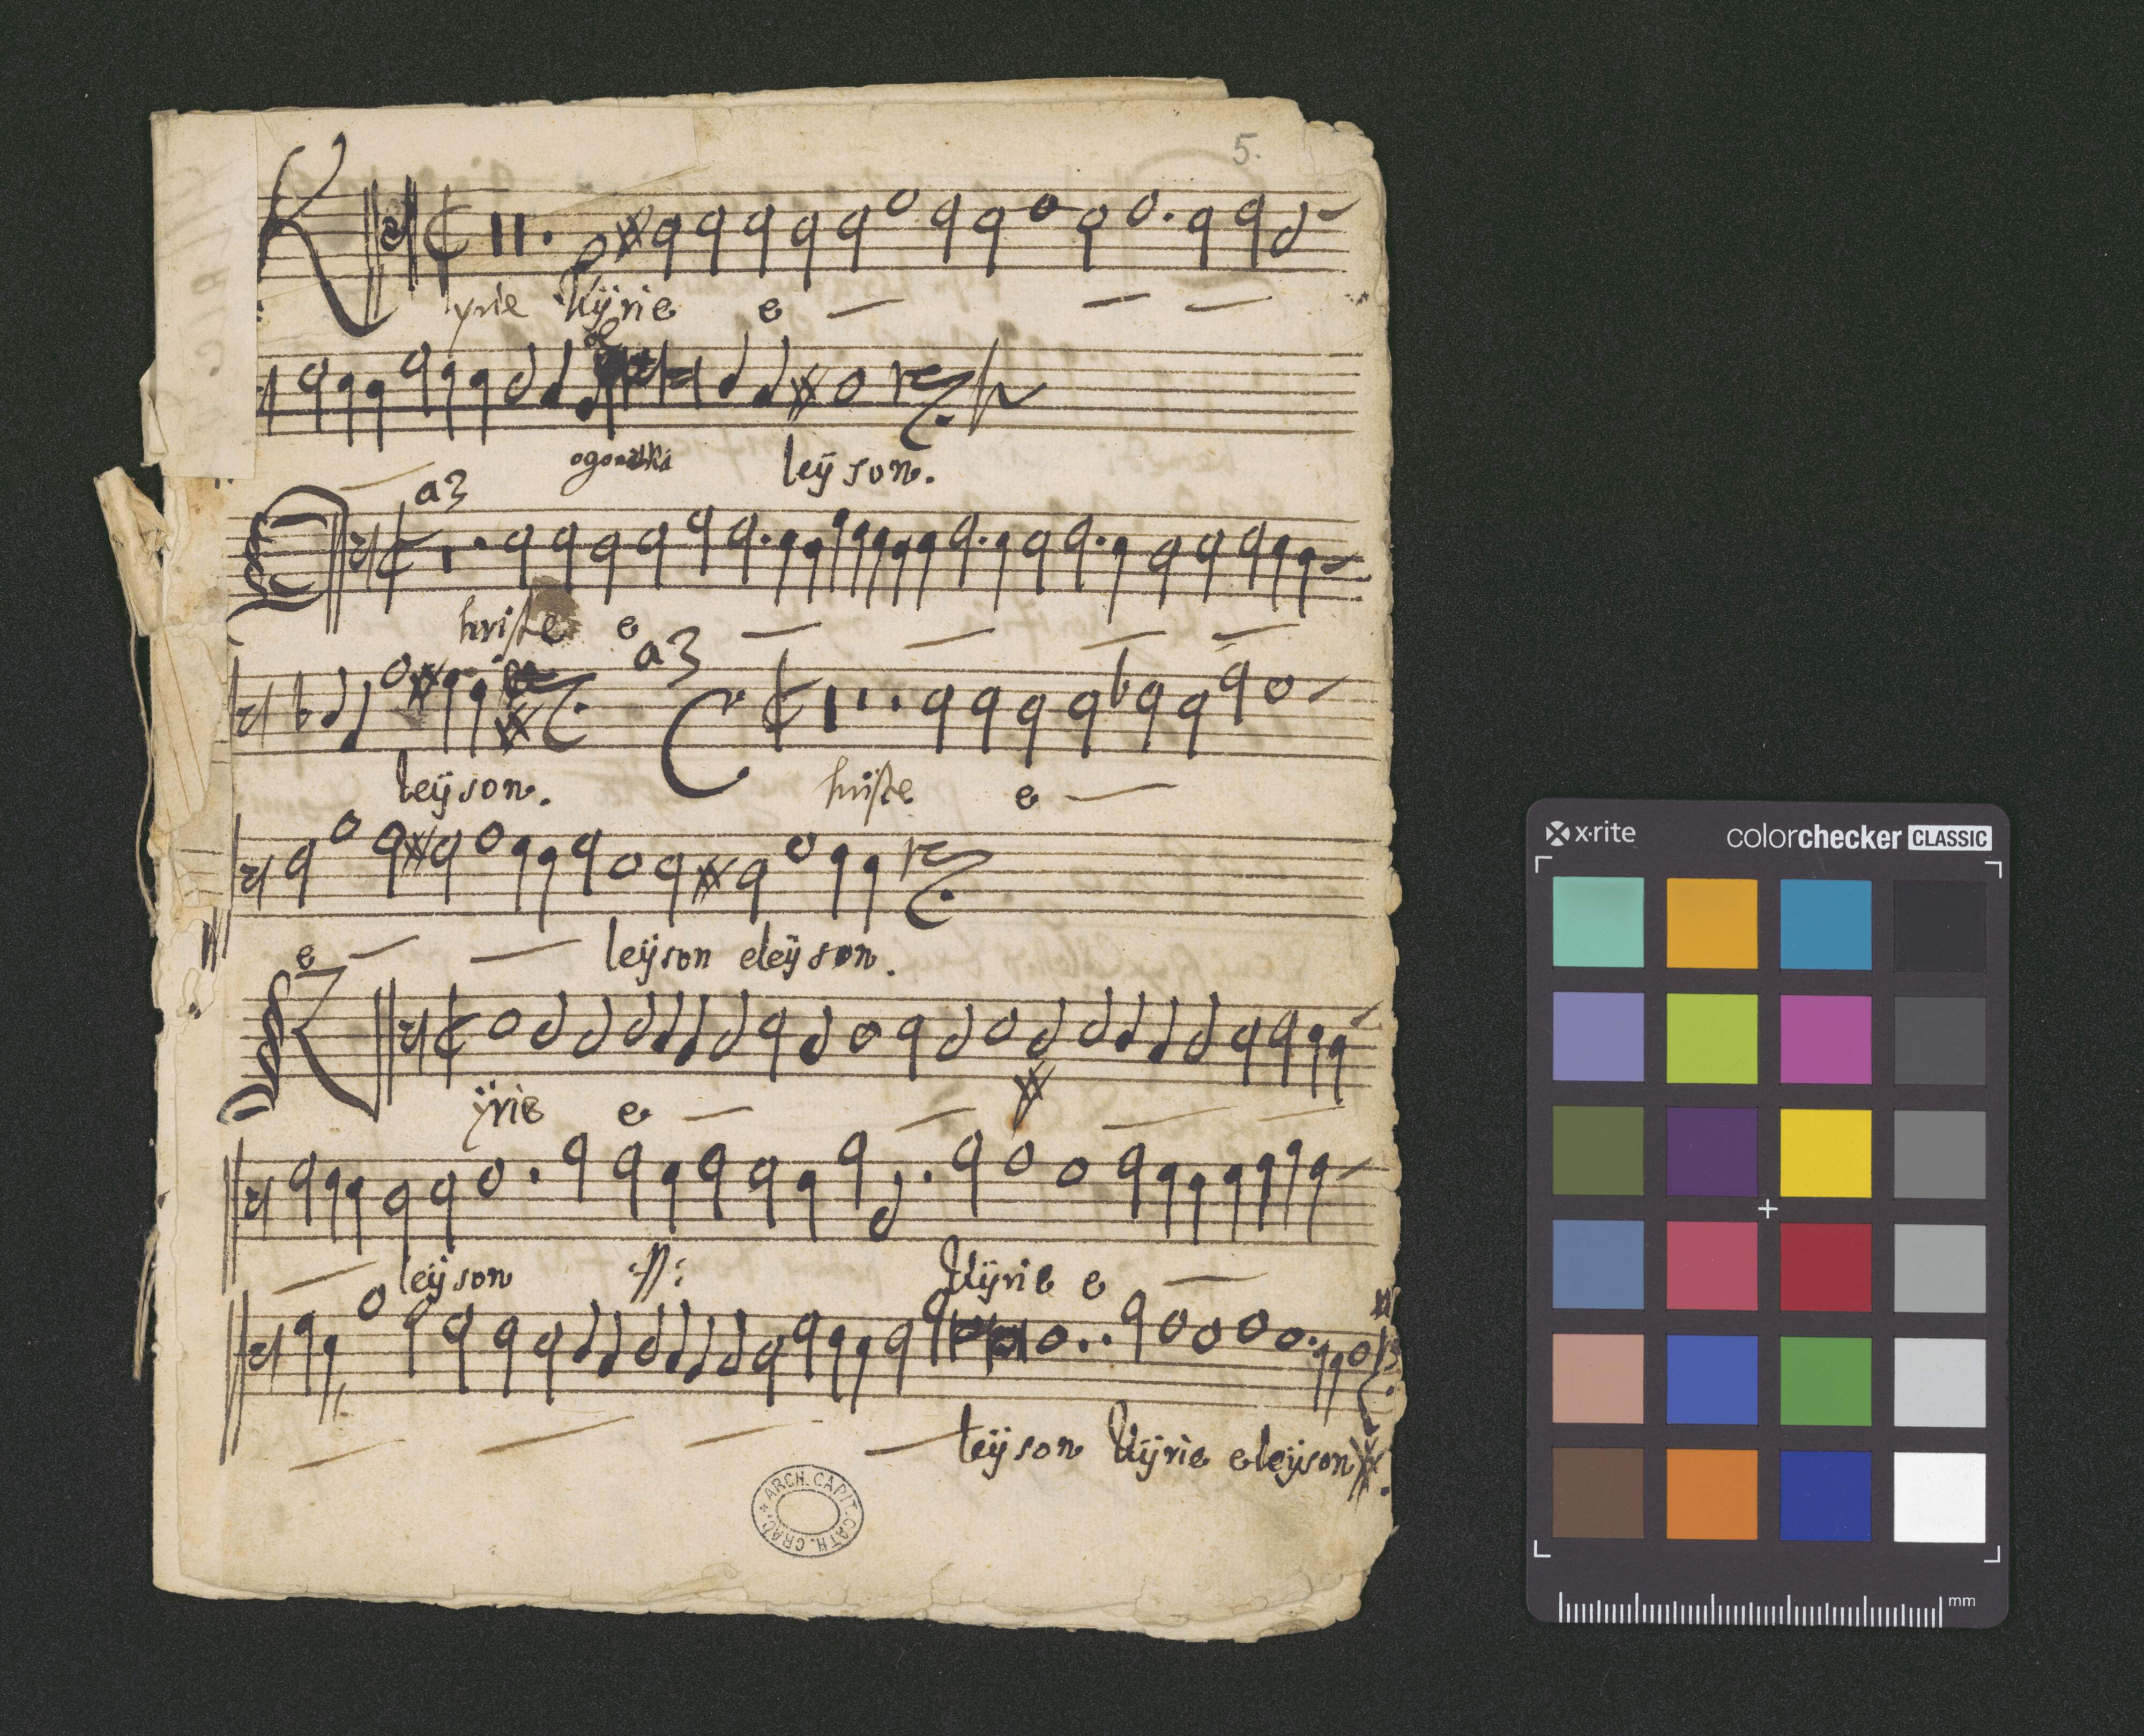 5.
K yrie Kÿrie e
ogonki leÿson.
a3
C hriste e
a3
leÿson. C hriste e
e leÿson eleÿson.
K ÿrie e
leÿson :||: Kÿrie e
leÿson Kÿrie eleÿson
ARCH. CAPIT. CATH. CRAC.
x·rite colorchecker CLASSIC
mm